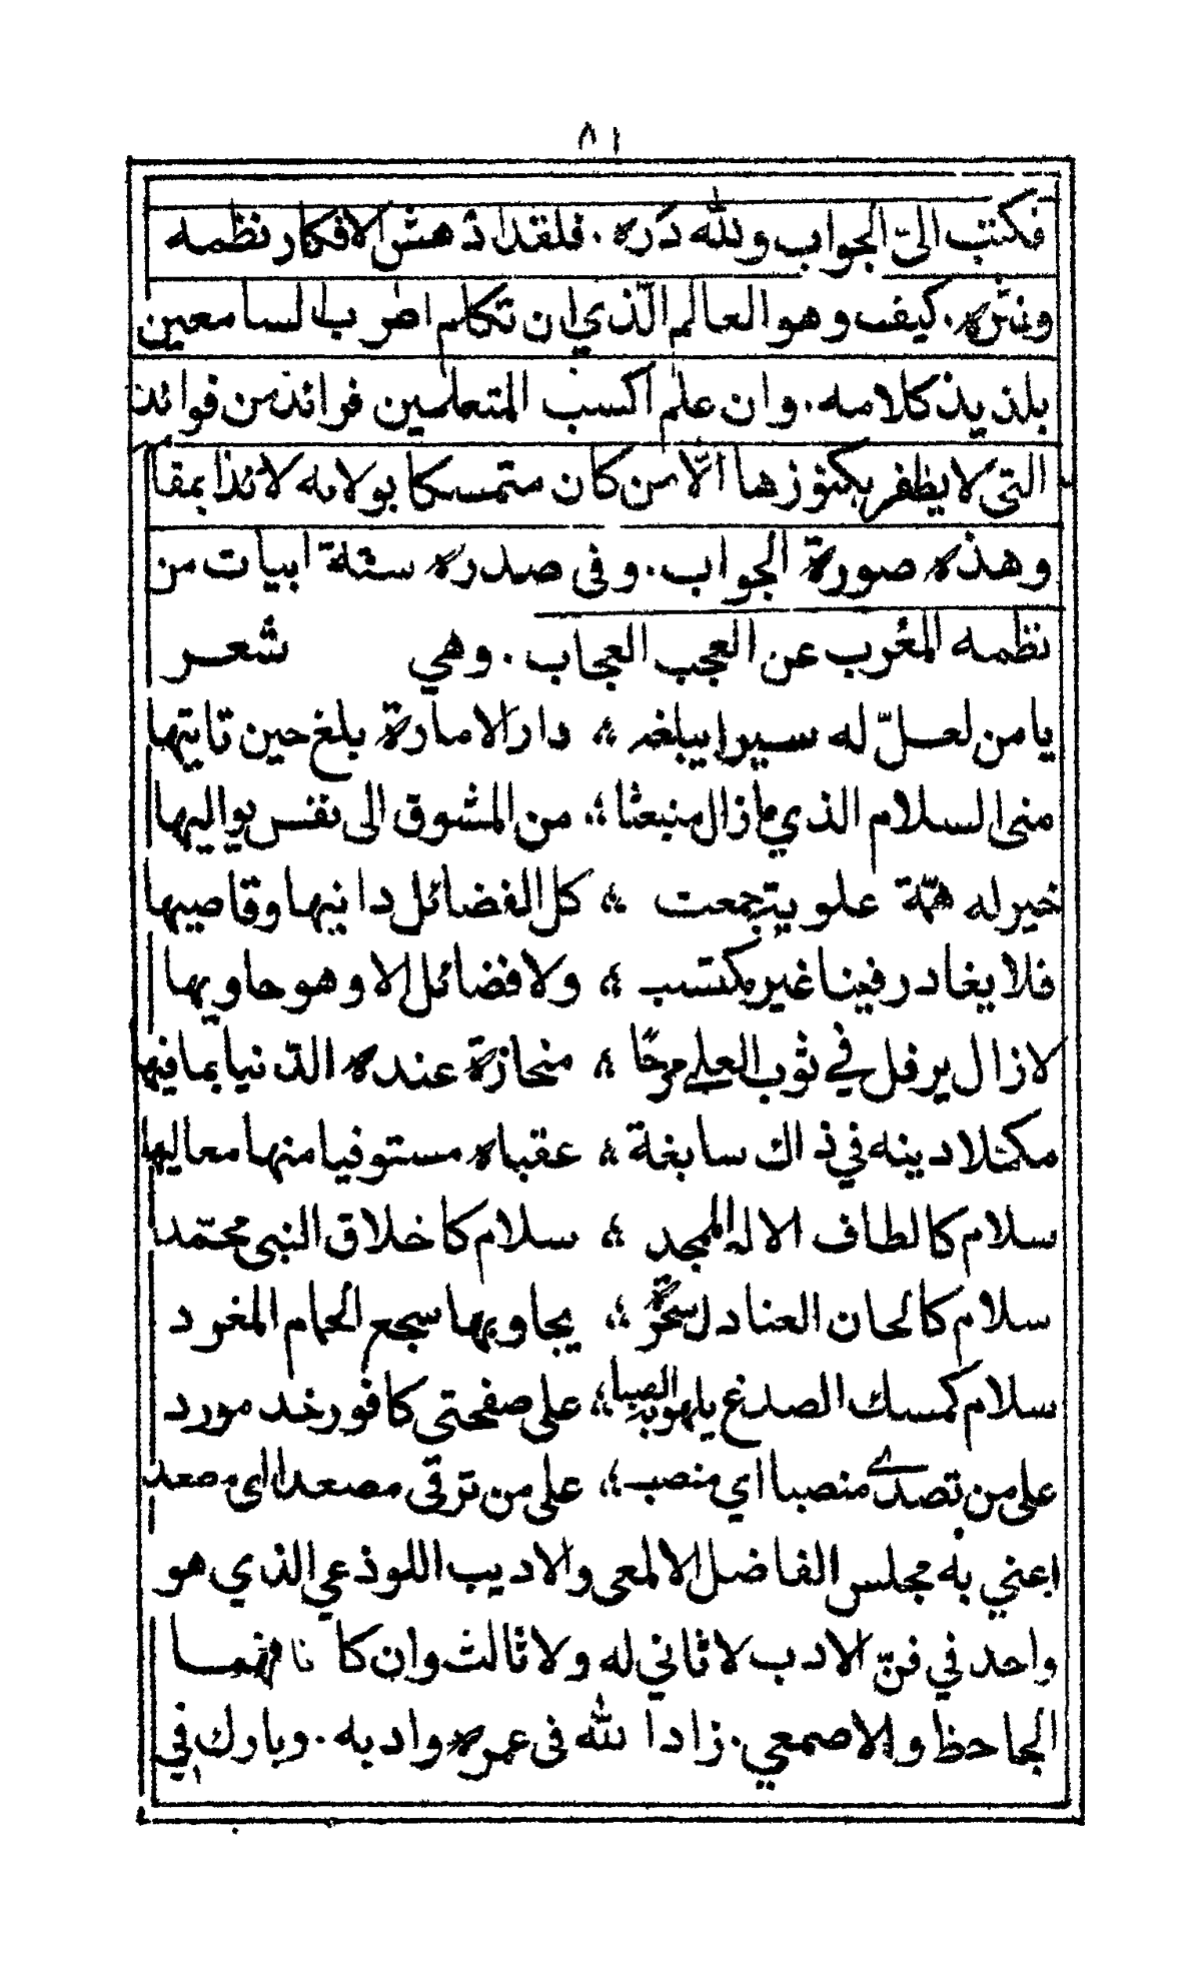 ٨١
فكتب الىّ الجواب ولله دَره . فلقد ادهش الافكار نظمه
ونثره . كيف وهو العالم الّذي ان تكلم اطرب السامعين
بلذيذ كلامه . وان علم اكسب المتعلمين فرائد من فوائد
التى لا يظفر بكنوزها الّا من كان متمسكا بولايه لائذا بمقا
وهذه صورة الجواب . وفى صدره ستة ابيات من
نظمه المُعْرب عن العجب العجاب . وهي شعر
يا من لعلّ له سيرا يبلغه ؛ دار الامارة بلغ حين تاتيها
منى السلام الذي ما زال منبعثا ؛ من المشوق الى نفس يواليها
خير له همّة علوية جمعت ؛ كل الفضائل دانيها وقاصيها
فلا يغادر فينا غير مكتسب ؛ ولا فضائل الا وهو حاويها
لازال يرفل في ثوب العلى مرحًا ؛ منحازة عنده الدّنيا بما فيها
مكمّلا دينه في ذاك سابغة ؛ عقباه مستوفيا منها معاليها
سلام كالطاف الاله الممجد ؛ سلام كاخلاق النبى محمّد
سلام كالحان العنادل سحرة ؛ يجاوبها سجع الحمام المغرد
سلام كمسك الصدغ يلهو به الصبا ؛ على صفحتى كافور خد مورد
على من تصدى منصبا اي منصب ؛ على من ترقى مصعدا اى مصعد
اعني به مجلس الفاضل الالمعى والاديب اللوذعي الذي هو
واحد في فنّ الادب لا ثاني له ولا ثالث وان كانا فهما
الجاحظ والاصمعي . زاد الله فى عمره وادبه . وبارك في